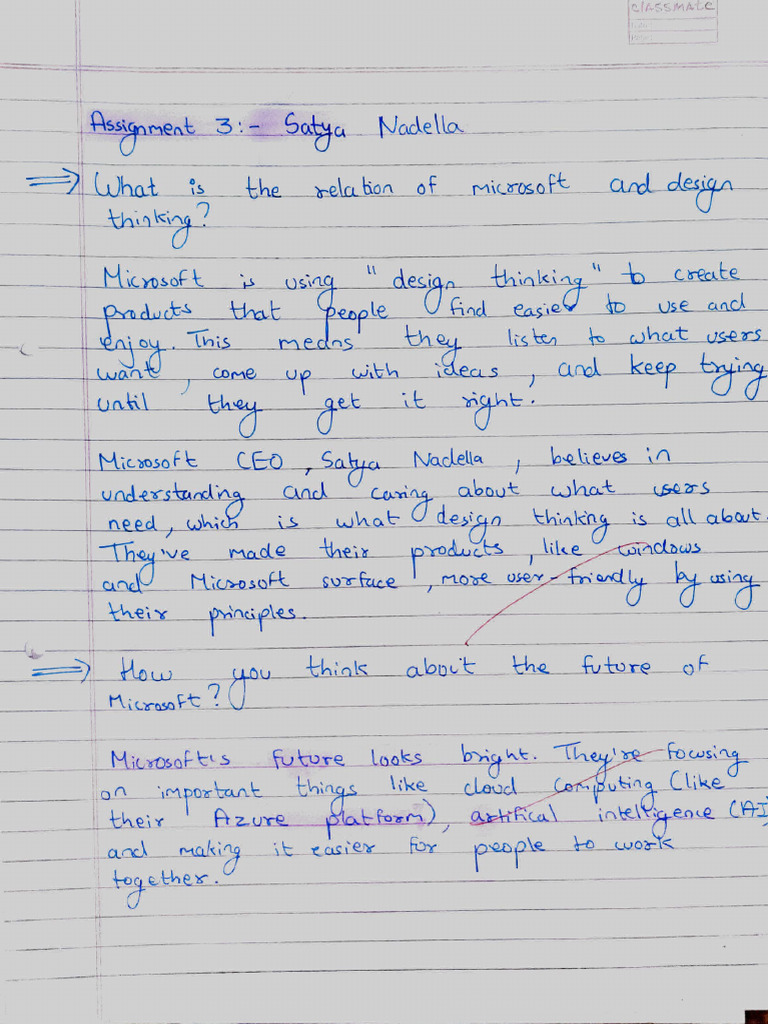 classmate
Assignment 3:- Satya Nadella
What is the relation of microsoft and design
thinking?
Microsoft is using "design thinking" to create
products that people find easier to use and
enjoy. This means they listen to what users
want, come up with ideas, and keep trying
until they get it right.
Microsoft CEO, Satya Nadella, believes in
understanding and caring about what users
need, which is what design thinking is all about.
They've made their products, like windows
and Microsoft surface, more user-friendly by using
their principles.
How you think about the future of
Microsoft?
Microsoft's future looks bright. They're focusing
on important things like cloud computing (like
their Azure platform), artifical intelligence (AI)
and making it easier for people to work
together.